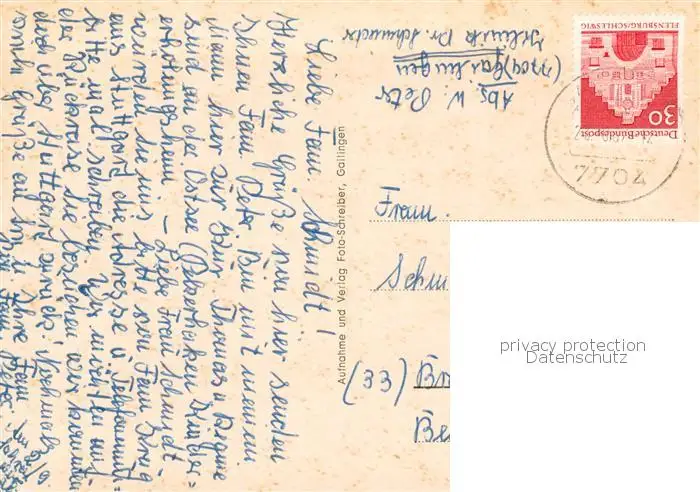 Liebe Frau Schmidt!
Herzliche Grüße von hier senden
Ihnen Frau Peter. Bin mit meinem
Mann hier zur Kur. Thomas u. Regine
sind an der Ostsee (Pelzerhaken Kinder=
erholungsheim – Liebe Frau Schmidt
würden Sie uns bitte von Frau
aus Stuttgart die Adresse u. Telefonnr.
bitte mal schreiben. Wir möchten auf
der Rückreise sie besuchen wir kommen
dann über Stuttgart zurück. Nochmals
Grüße auch an Ihre
Frau Peter
Aufnahme und Verlag Foto-Schreiber, Gailingen
Abs. W. Peter
(7704) Gailingen
Klinik Dr. Schmieder
Deutsche Bundespost
30
FLENSBURG/SCHLESWIG
7704
Frau
Schm
(33) Br
Be
privacy protection
Datenschutz